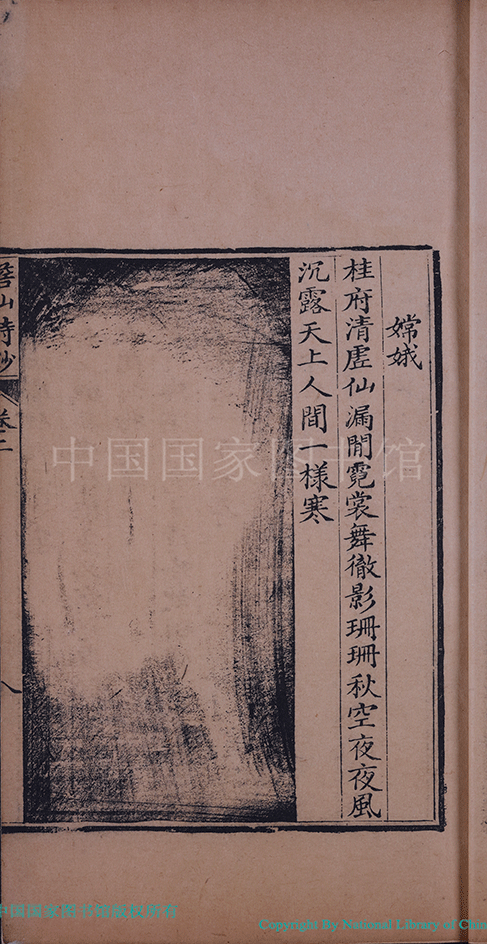 嫦娥
桂府清虛仙漏閒霓裳舞徹影珊珊秋空夜夜風
沉露天上人間一樣寒
山詩鈔
卷二
八
中国国家图书馆
中国国家图书馆版权所有
Copyright By National Library of